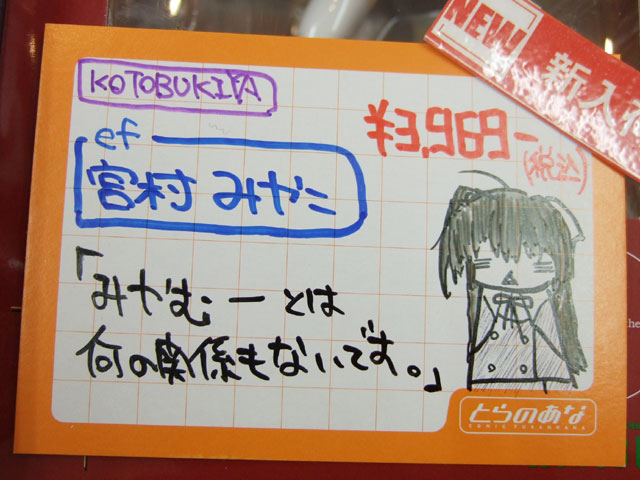 KOTOBUKIYA
NEW
新入
¥3,969-
(税込)
ef
宮村 みやこ
「みやむーとは
何の関係もないです。」
とらのあな
COMIC TORANOANA